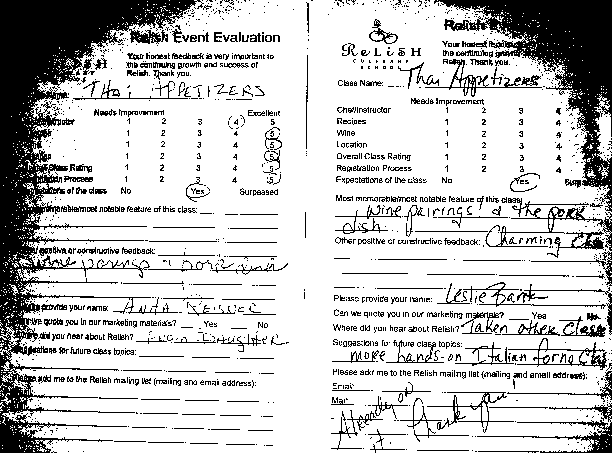 Relish Event Evaluation
Your honest feedback is very important to
the continuing growth and success of
Relish. Thank you.
THAI APPETIZERS
Needs Improvement Excellent
1 2 3 4 5
1 2 3 4 5
1 2 3 4 5
1 2 3 4 5
Class Rating 1 2 3 4 5
Process 1 2 3 4 5
of the class No Yes Surpassed
notable feature of this class:
positive or constructive feedback:
wine parings
provide your name: ANITA
we quote you in our marketing materials? Yes No
did you hear about Relish? From DAUGHTER
for future class topics:
add me to the Relish mailing list (mailing and email address):
Relish
RELISH
CULINARY
SCHOOL
Your honest feedback
the continuing growth
Relish. Thank you.
Class Name: Thai Appetizers
Needs Improvement
Chef/Instructor 1 2 3 4
Recipes 1 2 3 4
Wine 1 2 3 4
Location 1 2 3 4
Overall Class Rating 1 2 3 4
Registration Process 1 2 3 4
Expectations of the class No Yes
Most memorable/most notable feature of this class:
wine pairings! & the pork
dish
Other positive or constructive feedback: Charming
Please provide your name: Leslie Bank
Can we quote you in our marketing materials? Yes No
Where did you hear about Relish? Taken other Class
Suggestions for future class topics:
more hands-on Italian
Please add me to the Relish mailing list (mailing and email address):
Email
Mail
Already on
it. Thank you!